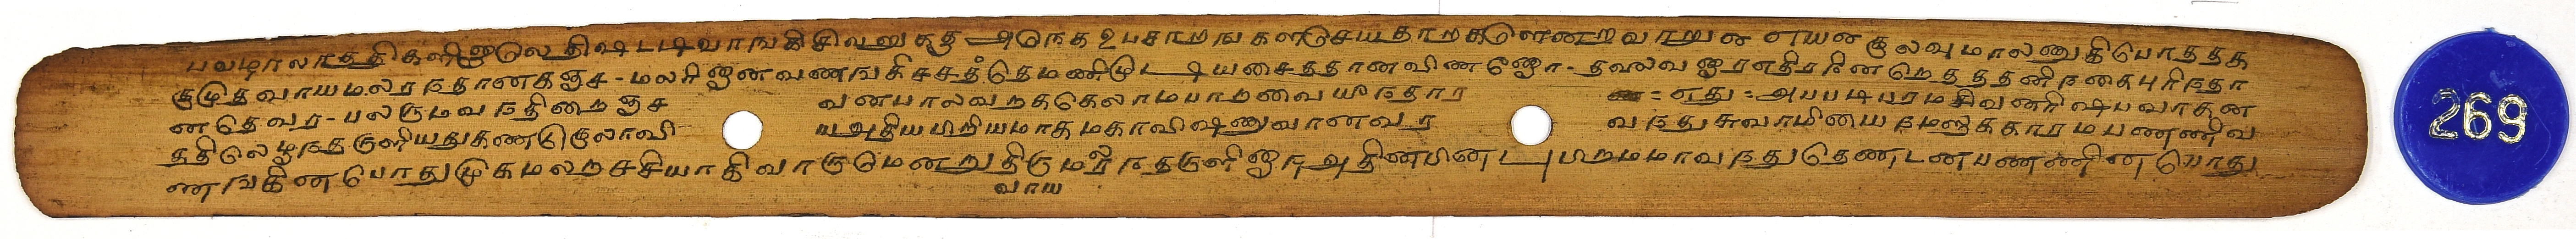 பலமூலாதததிகளினாலே திஷடடிவாஙகிசிலறுககு அநேக உபசாறஙகளுசெயதாறகளெனறவாறு ௭ எயன குலவுமாலணுகிபோதததக
குமுதவாயமலரநதானகஞச - மலரினனவணஙகிசசததேமணிமுடியசைததானவிணணோ - தவலவரரெதிரநினறெதததனிநகைபுரிநதா
னதேவர - பலருமவநதிறைஞச வனபாலவறககெலாமபாறவையீநதார ௭ = எது = அபபடிபரமசிவனரிஷபவாகன
ததிலெழுநதருளியதுகணடுகுலாவி யஅதியபிறியமாகமகாவிஷணுவானவர வநதுசுவாமியை நமஸககாரமபணணிவ
ணஙகினபோதுமுகமலறசசியாகிவாருமெனறுதிருமலரநதருளினாரஅதினபினபு பிறமமாவநதுதெணடனபணணினபோது
வாய
269